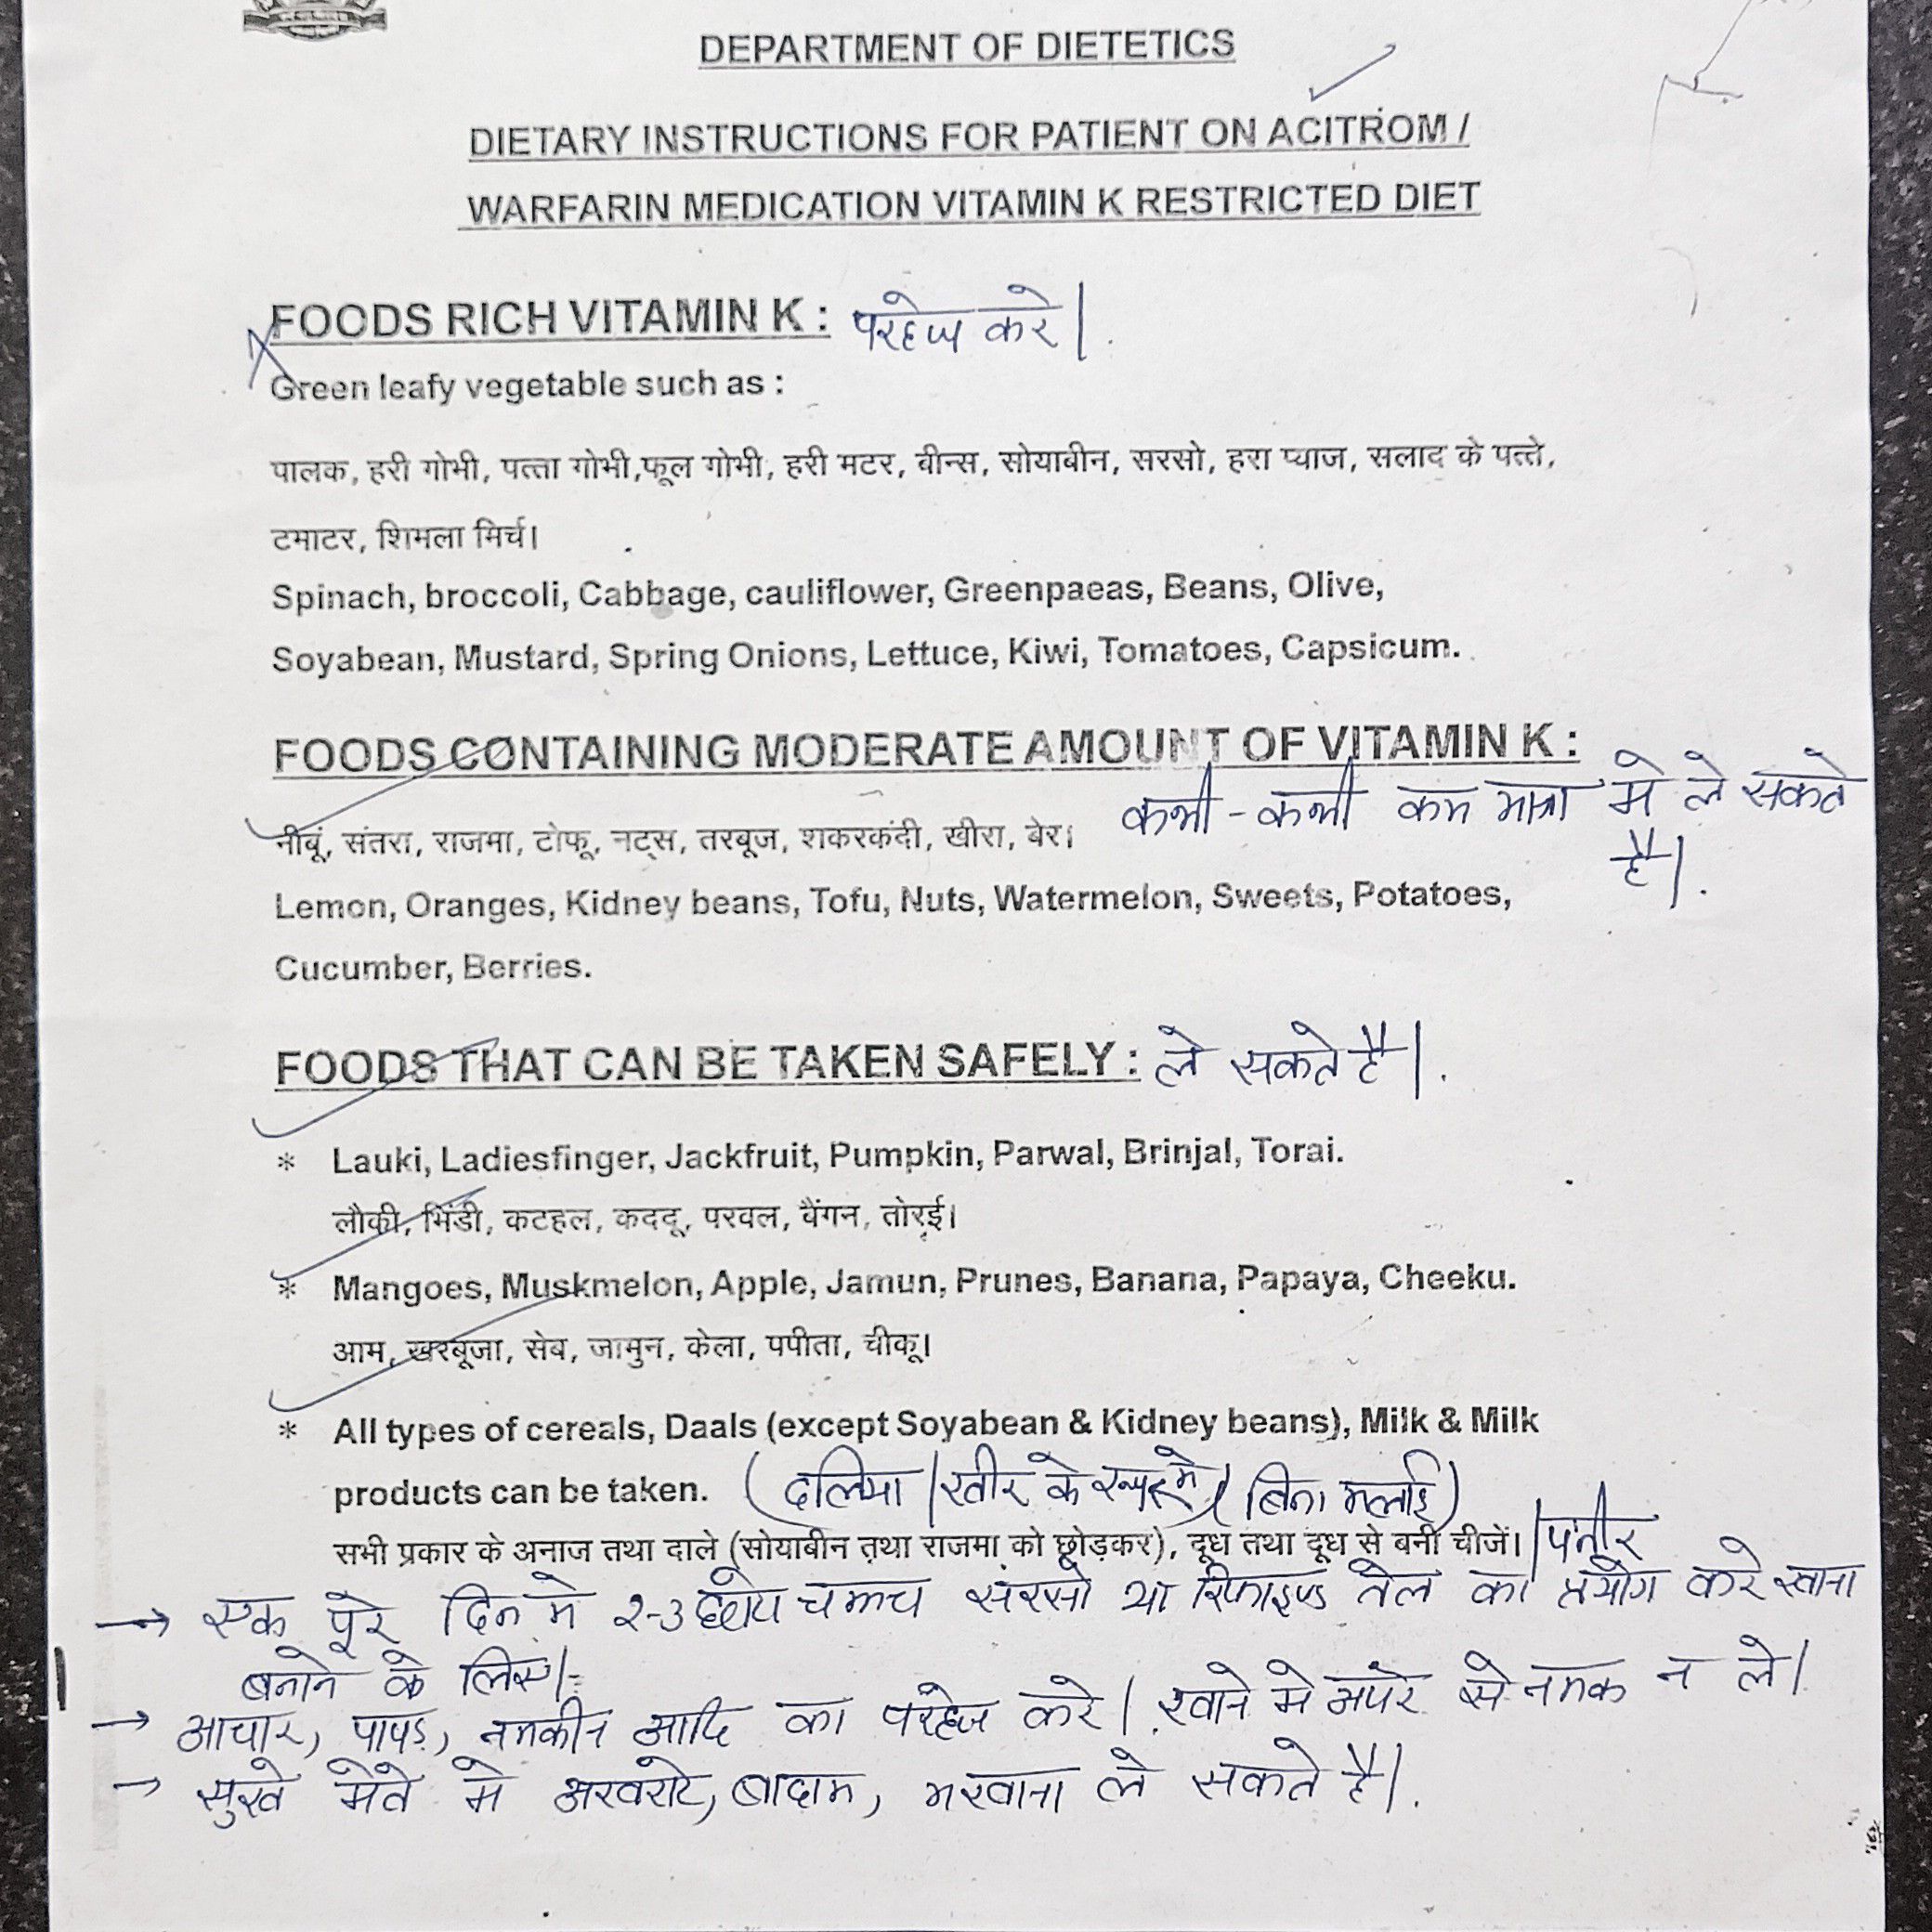 DEPARTMENT OF DIETETICS
DIETARY INSTRUCTIONS FOR PATIENT ON ACITROM /
WARFARIN MEDICATION VITAMIN K RESTRICTED DIET
FOODS RICH VITAMIN K : परहेज करे।
Green leafy vegetable such as :
पालक, हरी गोभी, पत्ता गोभी,फूल गोभी, हरी मटर, बीन्स, सोयाबीन, सरसो, हरा प्याज, सलाद के पत्ते,
टमाटर, शिमला मिर्च।
Spinach, broccoli, Cabbage, cauliflower, Greenpaeas, Beans, Olive,
Soyabean, Mustard, Spring Onions, Lettuce, Kiwi, Tomatoes, Capsicum.
FOODS CONTAINING MODERATE AMOUNT OF VITAMIN K :
कभी - कभी कम मात्रा मे ले सकते
है।
नीबूं, संतरा, राजमा, टोफू, नट्स, तरबूज, शकरकंदी, खीरा, बेर।
Lemon, Oranges, Kidney beans, Tofu, Nuts, Watermelon, Sweets, Potatoes,
Cucumber, Berries.
FOODS THAT CAN BE TAKEN SAFELY : ले सकते है।
* Lauki, Ladiesfinger, Jackfruit, Pumpkin, Parwal, Brinjal, Torai.
लौकी, भिंडी, कटहल, कददू, परवल, बैंगन, तोरई।
* Mangoes, Muskmelon, Apple, Jamun, Prunes, Banana, Papaya, Cheeku.
आम, खरबूजा, सेब, जामुन, केला, पपीता, चीकू।
* All types of cereals, Daals (except Soyabean & Kidney beans), Milk & Milk
products can be taken. (दलिया / खीर के रूप मे) (बिना मलाई)
सभी प्रकार के अनाज तथा दाले (सोयाबीन तथा राजमा को छोड़कर), दूध तथा दूध से बनी चीजें। / पनीर
→ एक पूरे दिन मे 2-3 छोटे चम्मच सरसो या रिफाइण्ड तेल का प्रयोग करे खाना
बनाने के लिए।
→ आचार, पापड़, नमकीन आदि का परहेज करे। खाने मे ऊपर से नमक न ले।
→ सुखे मेवे मे अखरोट, बादाम, मखाना ले सकते है।